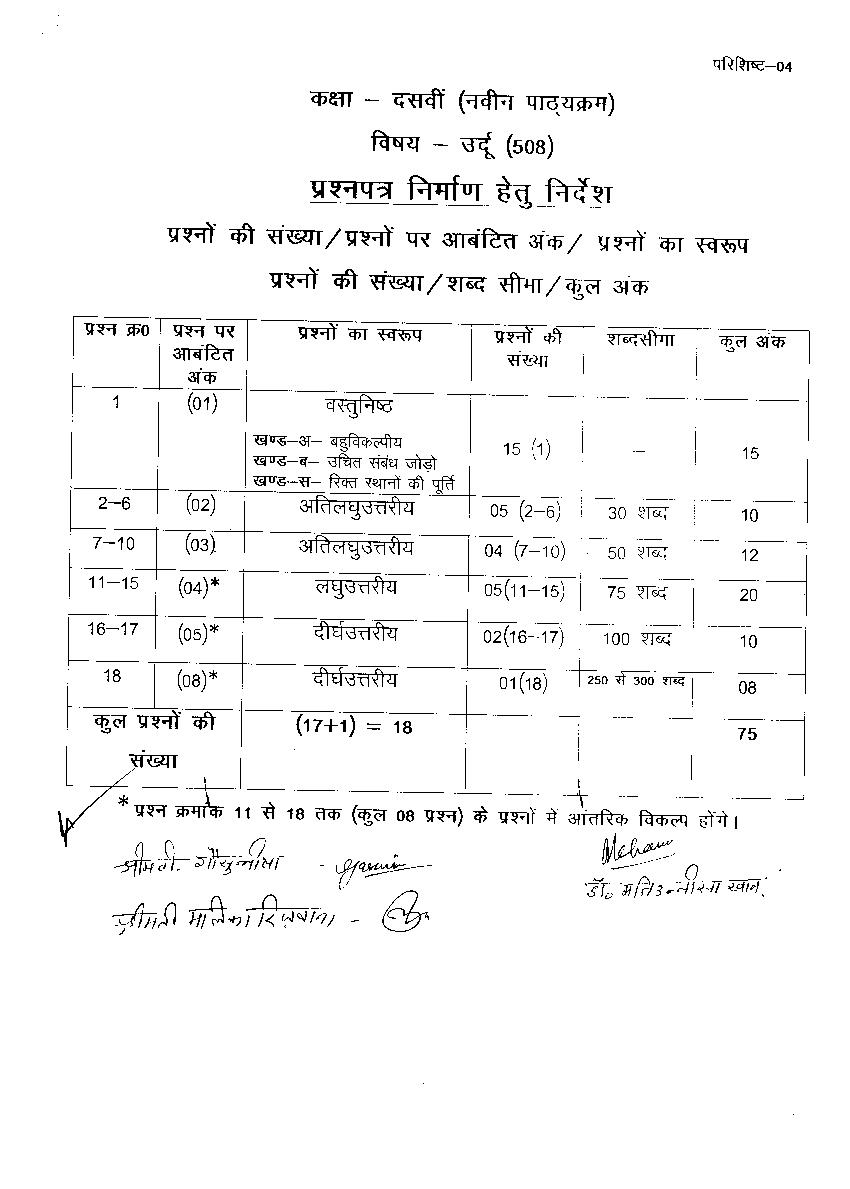 परिशिष्ट–04
कक्षा – दसवीं (नवीन पाठ्यक्रम)
विषय – उर्दू (508)
प्रश्नपत्र निर्माण हेतु निर्देश
प्रश्नों की संख्या/प्रश्नों पर आबंटित अंक/ प्रश्नों का स्वरूप
प्रश्नों की संख्या/शब्द सीमा/कुल अंक
प्रश्न क्र0 प्रश्न पर आबंटित अंक प्रश्नों का स्वरूप प्रश्नों की संख्या शब्दसीमा कुल अंक
1 (01) वस्तुनिष्ठ
खण्ड–अ– बहुविकल्पीय 15 (1) – 15
खण्ड–ब– उचित संबंध जोड़ो
खण्ड–स– रिक्त स्थानों की पूर्ति
2–6 (02) अतिलघुउत्तरीय 05 (2–6) 30 शब्द 10
7–10 (03) अतिलघुउत्तरीय 04 (7–10) 50 शब्द 12
11–15 (04)* लघुउत्तरीय 05(11–15) 75 शब्द 20
16–17 (05)* दीर्घउत्तरीय 02(16–17) 100 शब्द 10
18 (08)* दीर्घउत्तरीय 01(18) 250 से 300 शब्द 08
कुल प्रश्नों की संख्या (17+1) = 18 75
* प्रश्न क्रमांक 11 से 18 तक (कुल 08 प्रश्न) के प्रश्नों में आंतरिक विकल्प होंगे।
श्रीमती
डॉ. खान
श्रीमती